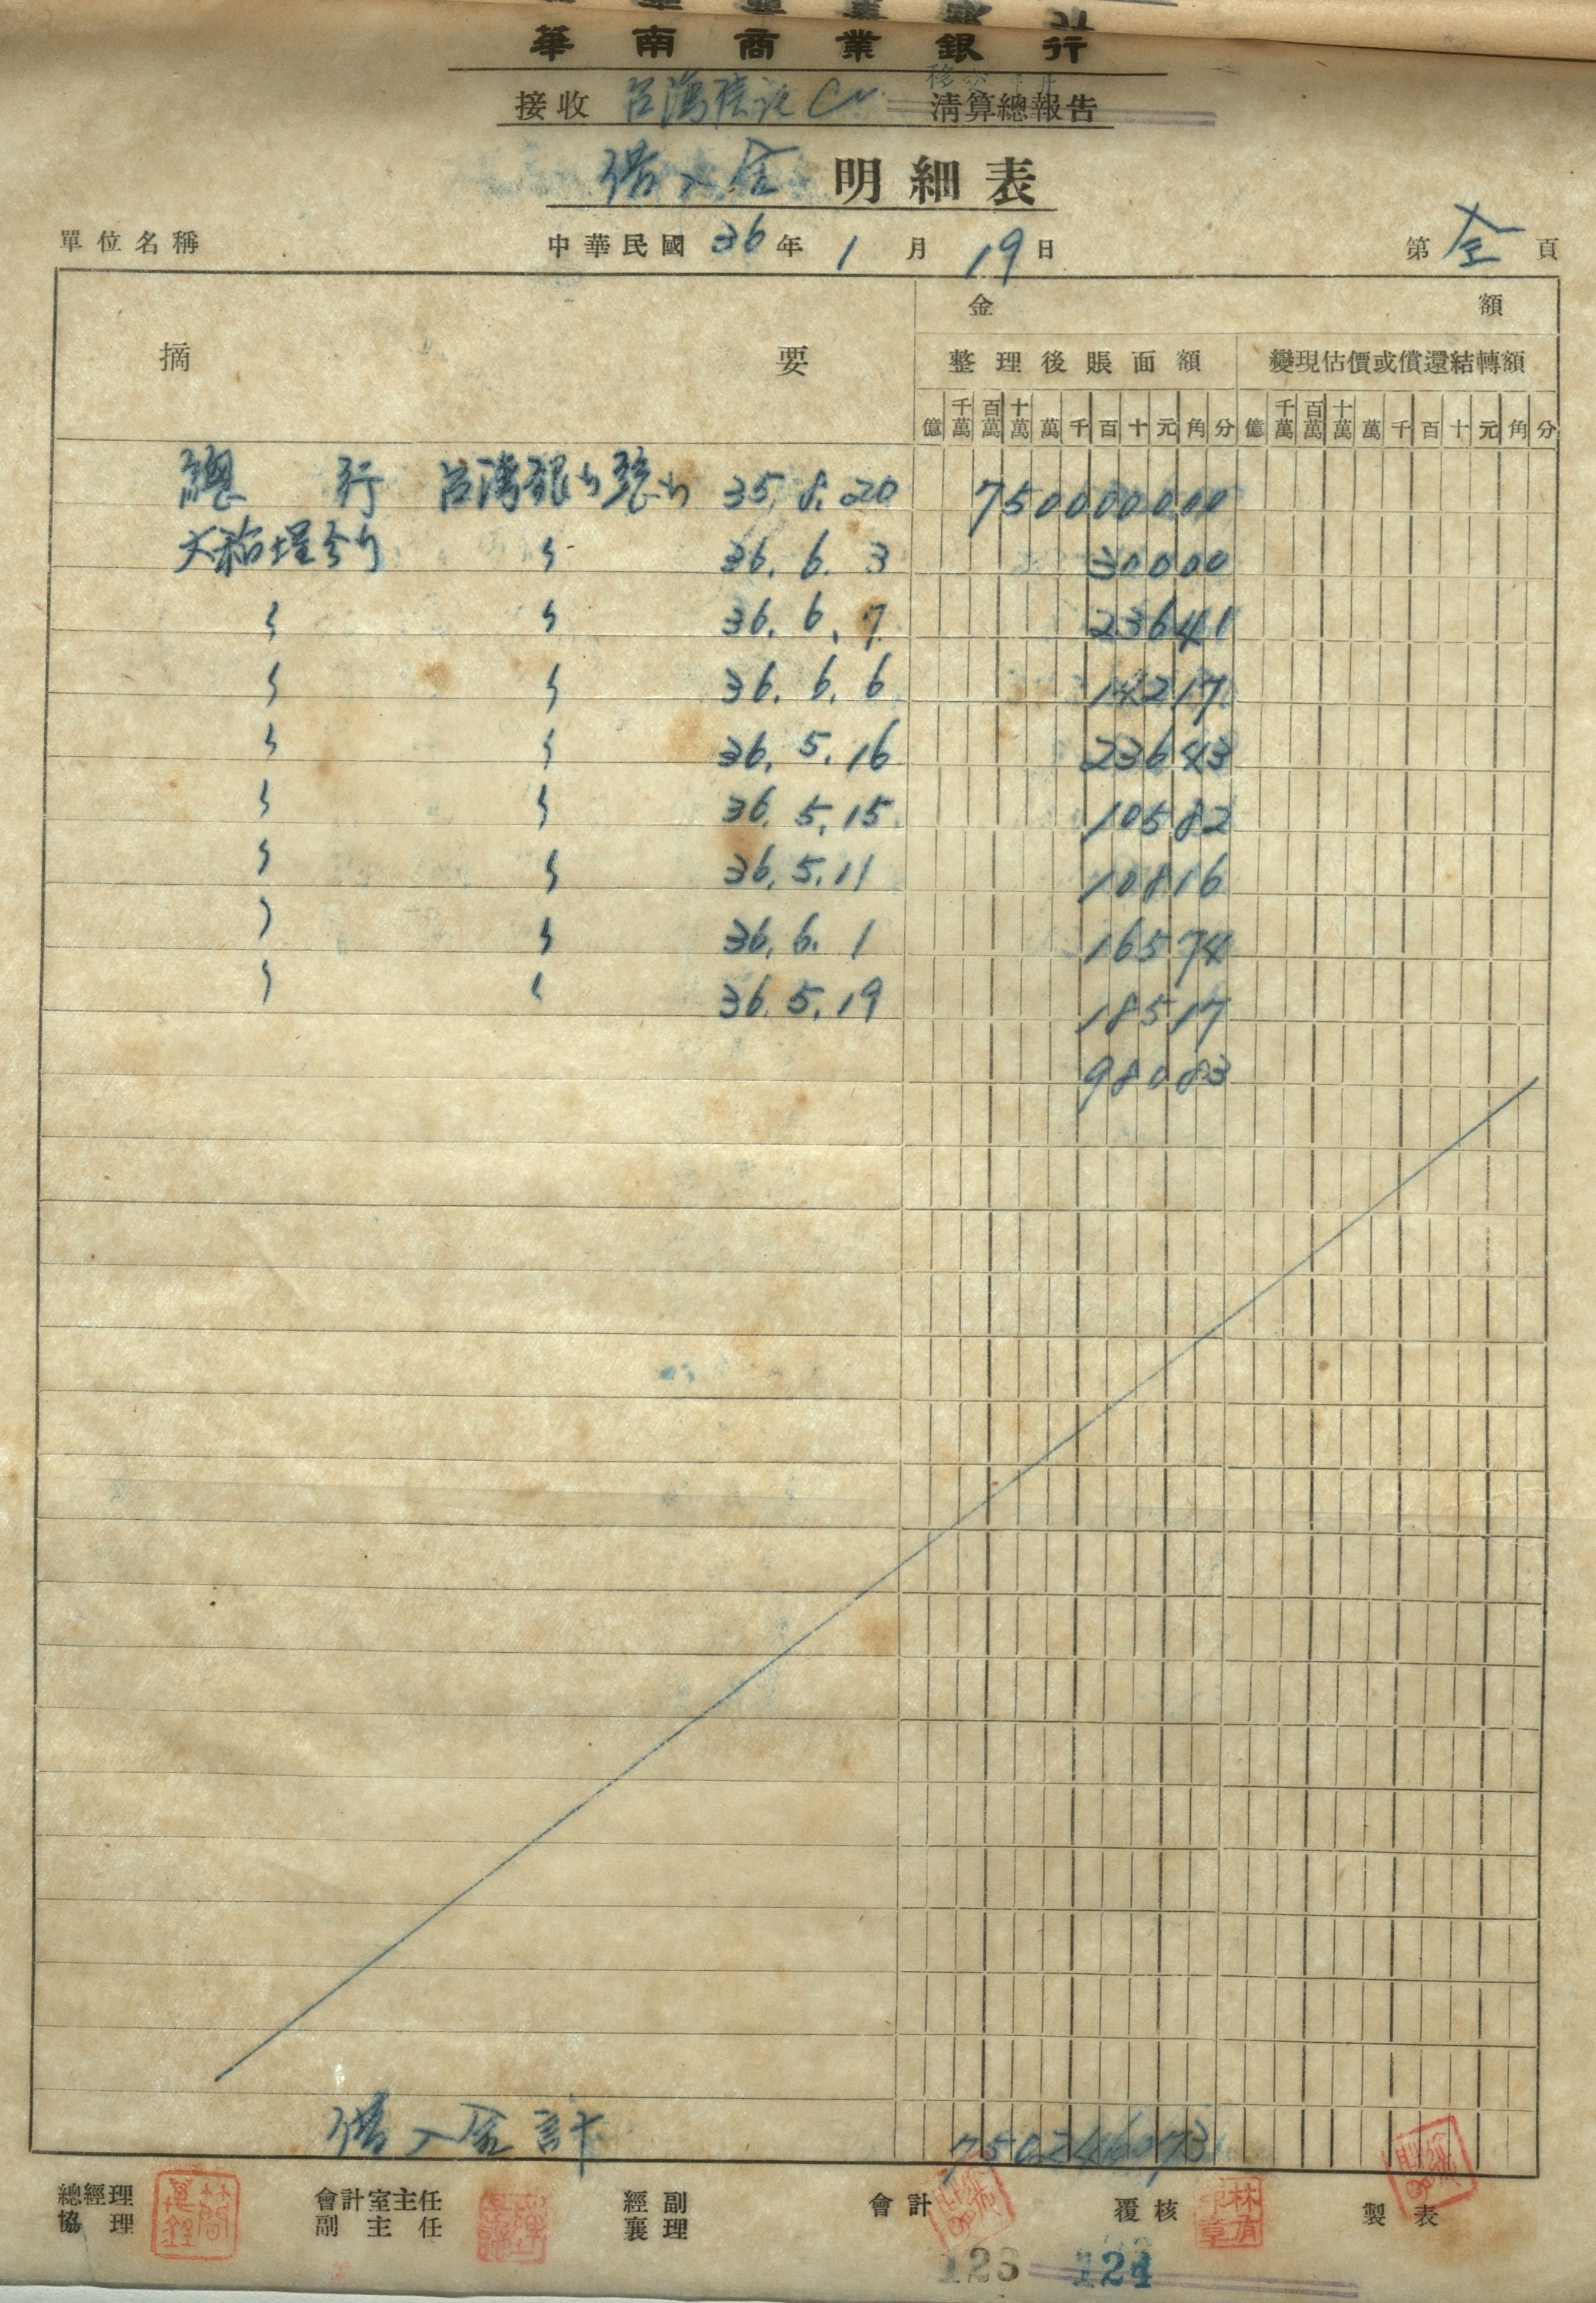 華南商業銀行
接收 台灣信託 清算總報告
借入金 明細表
單位名稱 中華民國 36 年 1 月 19 日 第 全 頁
摘要 金額
整理後賬面額 變現估價或償還結轉額
億 千萬 百萬 十萬 萬 千 百 十 元 角 分 億 千萬 百萬 十萬 萬 千 百 十 元 角 分
總行 台灣銀行總行 35.8.20 750000000
大稻埕分行 〃 36.6.3 30000
〃 〃 36.6.7 23641
〃 〃 36.6.6 14217
〃 〃 36.5.16 23643
〃 〃 36.5.15 10582
〃 〃 36.5.11 10816
〃 〃 36.6.1 16574
〃 〃 36.5.19 18517
98083
借入金計 750246073
總經理 會計室主任 經副 會計 覆核 製表
協理 副主任 襄理
123 124